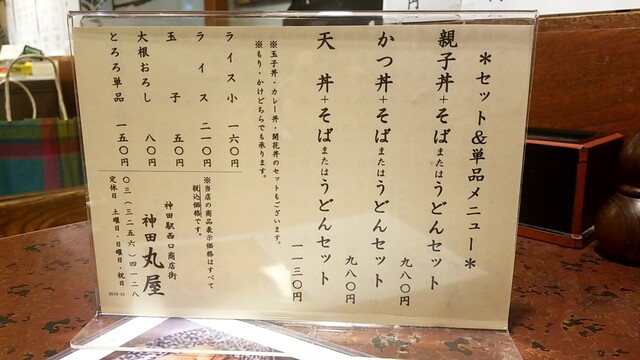 ＊セット&単品メニュー＊
親子丼+そばまたはうどんセット
九八〇円
かつ丼+そばまたはうどんセット
九八〇円
天 丼+そばまたはうどんセット
一一三〇円
※玉子丼・カレー丼・開花丼のセットもございます。
※もり・かけどちらでも承ります。
ライス小 一六〇円
ライス 二一〇円
玉子 五〇円
大根おろし 八〇円
とろろ単品 一五〇円
※当店の商品表示価格はすべて
税込価格です。
神田駅西口商店街
神田丸屋
〇三(三二五六)四一二八
定休日 土曜日・日曜日・祝日
円